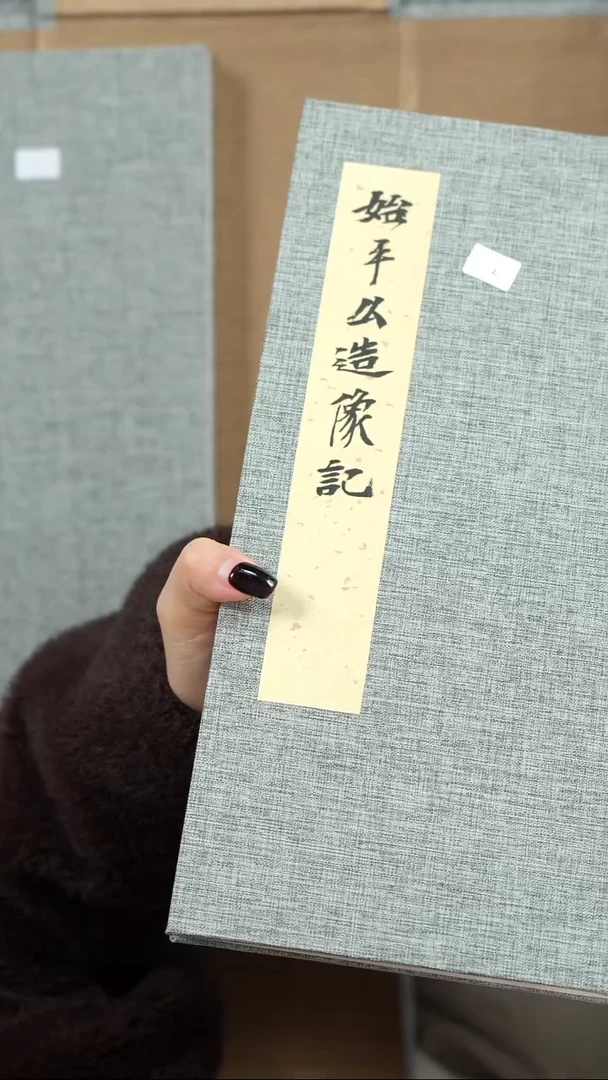 始平公造像記
上